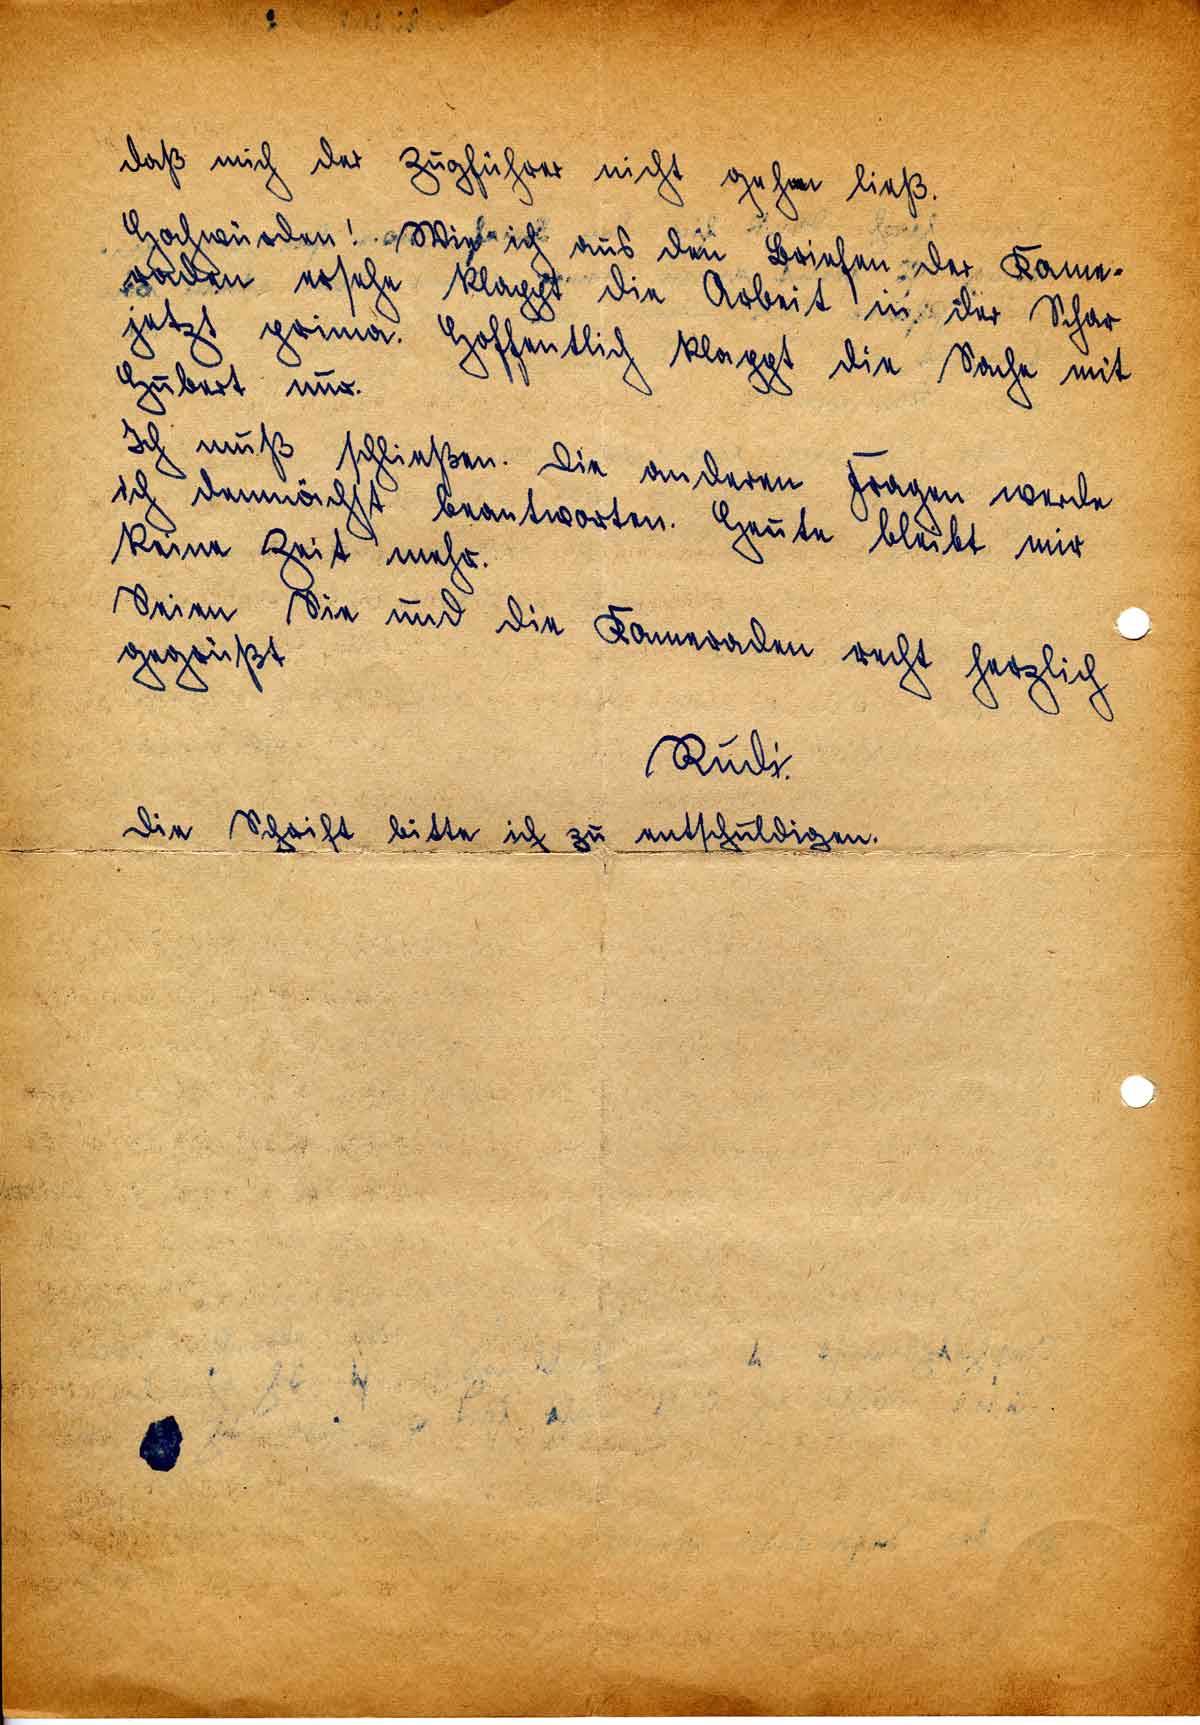 daß mich der Zugführer nicht gehen ließ.
Hochwürden! Wie ich aus den Briefen der Kame-
raden ersehe klappt die Arbeit in der Schar
jetzt prima. Hoffentlich klappt die Sache mit
Hubert nur.
Ich muß schließen. Die anderen Fragen werde
ich demnächst beantworten. Heute bleibt mir
keine Zeit mehr.
Seien Sie und die Kameraden recht herzlich
gegrüßt
Rudi.
Die Schrift bitte ich zu entschuldigen.